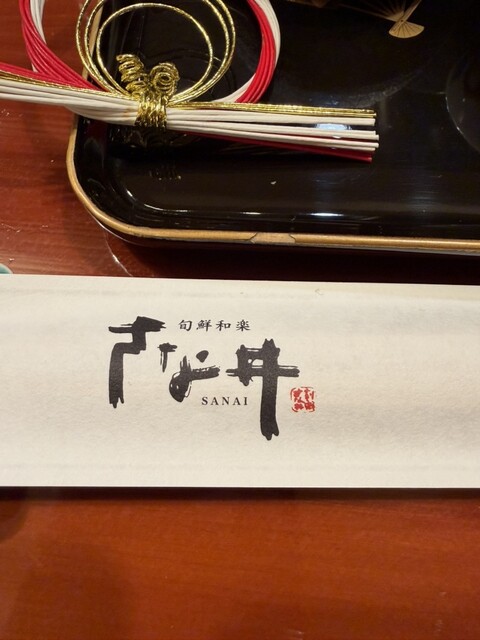 旬鮮和楽
さな井
SANAI